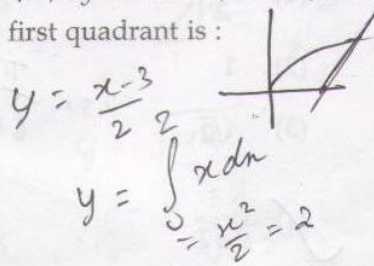 first quadrant is :
y = x-3 / 2
y = ∫₀² x dx
= x²/2 = 2